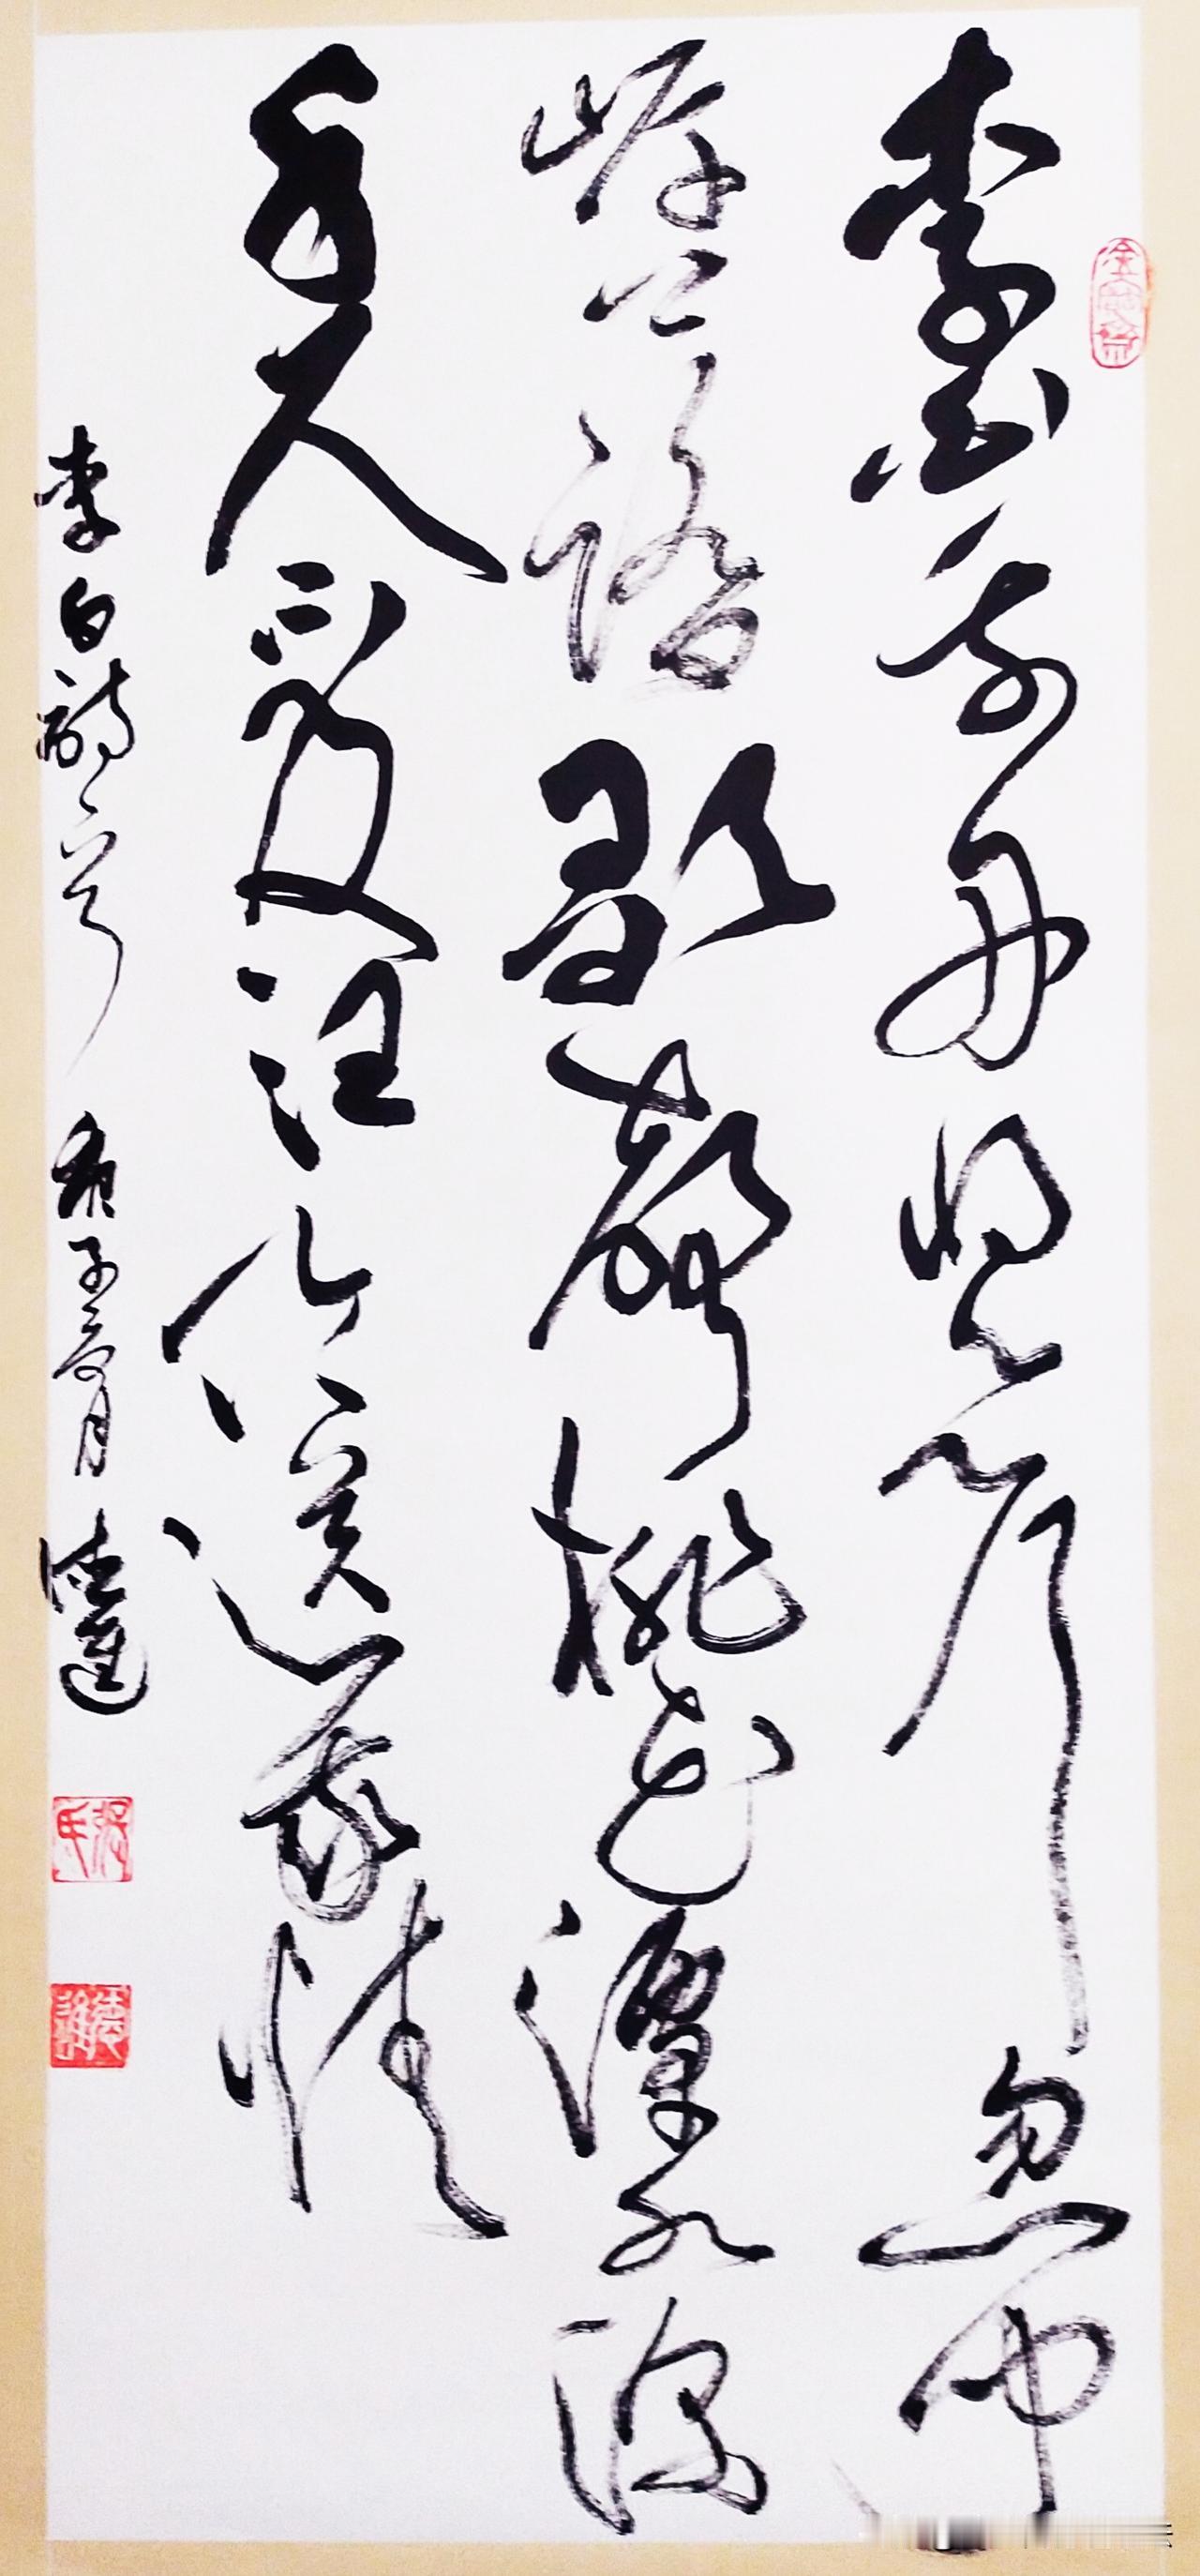 李白乘舟將欲行忽聞
岸上踏歌聲桃花潭水深
千尺不及汪倫送我情
李白詩一首 庚子夏月 德進
德進